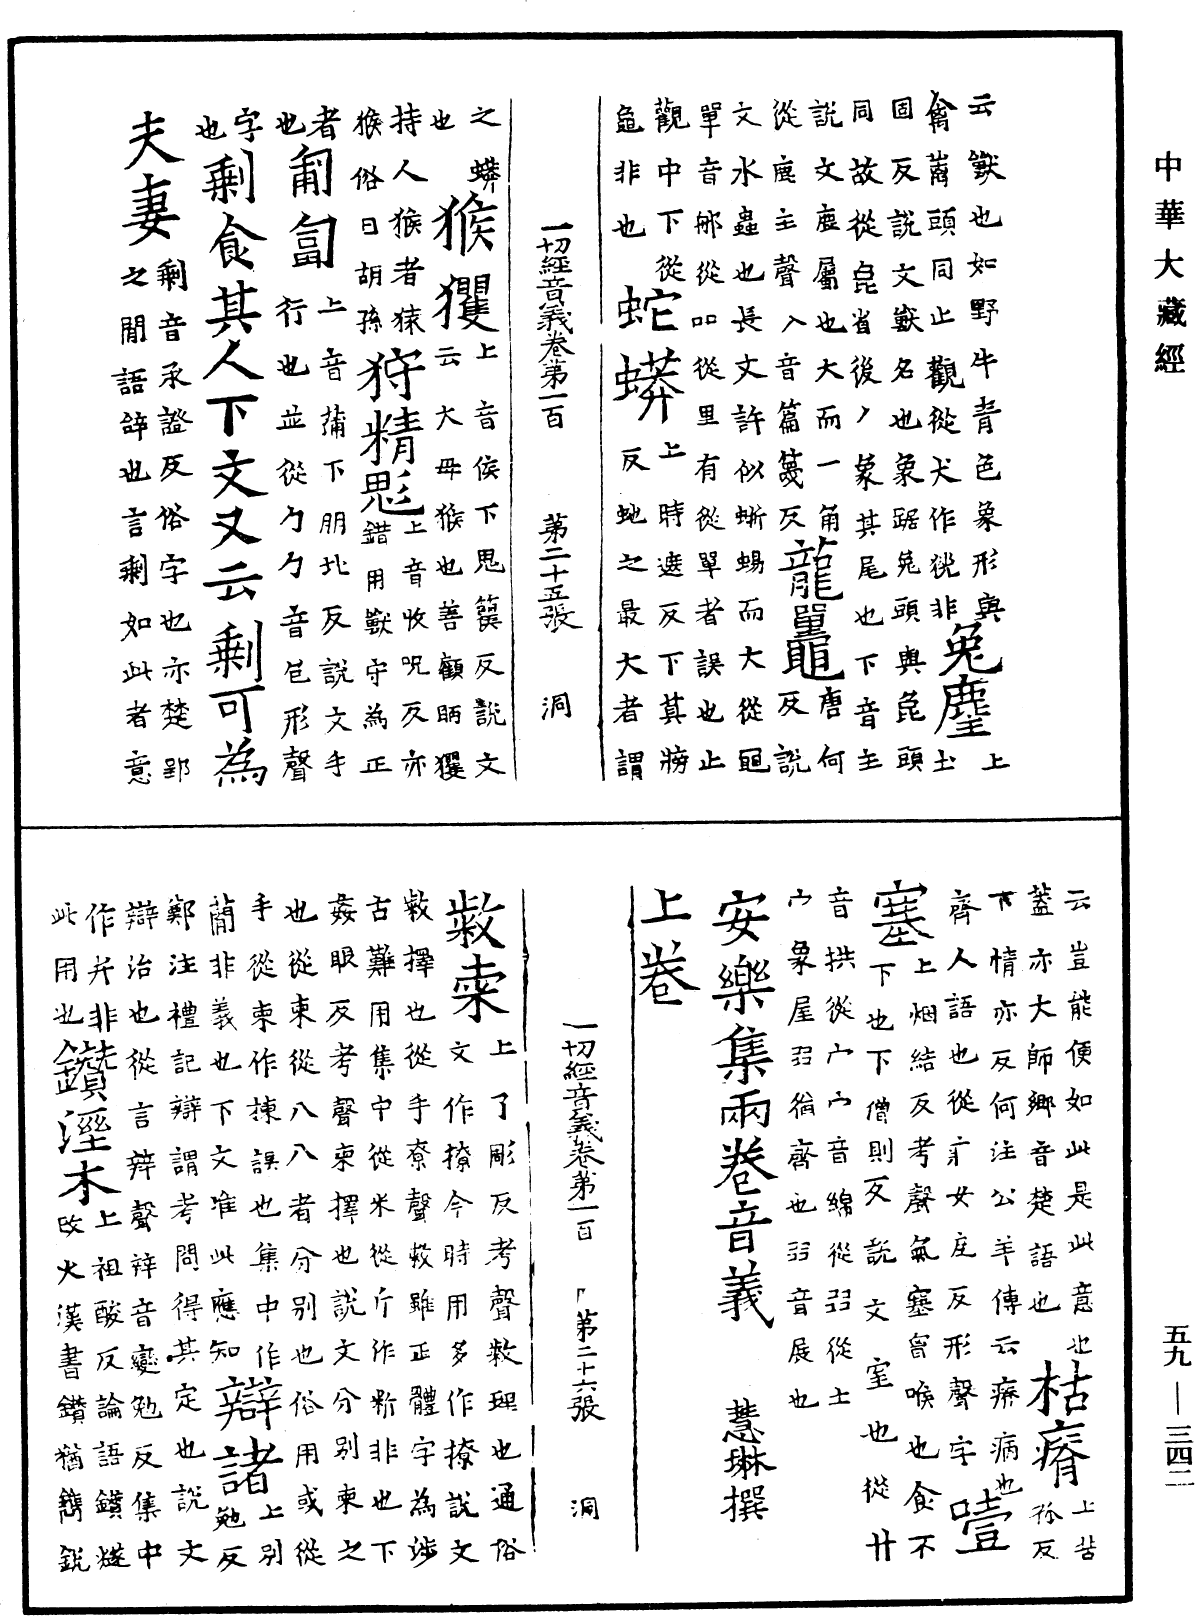 中華大藏經
云獸也如野牛青色象形與
禽离頭同止觀從犬作㹠非兔麞上土
固反說文獸名也象踞兔頭與㲋頭
同故從㲋省後人象其尾也下音主
說文麞屬也大而一角龍鼉唐何
從鹿主聲入音篇篾反反說
文水蟲也長丈許似蜥蜴而大從黽
單音那從吅從里有從單者誤也止
觀中下從
黽非也蛇蟒上時遮反下莫牓反虵之最大者謂
一切經音義卷第一百 第二十五張 洞
之蟒
也猴玃上音侯下思篗反說文云大母猴也善顧眄玃
持人猴者猿
猴俗曰胡孫狩精彪上音收呪反亦錯用獸守為正
者匍匐上音蒱下朋北反說文手
也行也並從勹勹音包形聲
字
也剩食其人下文又云剩可為
夫妻剩音承證反俗字也亦楚郢之間語辝也言剩如此者意
云豈能便如此是此意也枯瘠上苦
蓋亦大師鄉音楚語也
下情亦反何注公羊傳云瘠病也
齊人語也從疒女戹反形聲字噎
塞上烟結反考聲氣塞胷喉也食不下也下僧則反說文窒也從廾
音拱從宀宀音綿從㠭從土
宀象屋㠭猶齊也㠭音展也
安樂集兩卷音義 慧琳撰
上卷
一切經音義卷第一百 第二十六張 洞
敹柬上了彫反考聲敹理也通俗文作撩今時用多作撩說文
敹擇也從手尞聲敹雖正體字為涉
古難用集中從米從斤作断非也下
姦眼反考聲柬擇也說文分別柬之
也從束從八八者分別也俗用或從
手從柬作揀誤也集中作
蘭非義也下文准此應知辯諸上別勉反
鄭注禮記辯謂考問得其定也說文
辯治也從言辡聲辡音變勉反集中
作弁非
此用也鑽溼木上祖酸反論語鑽燧改火漢書鑽猶鐫銳
五九—三四二